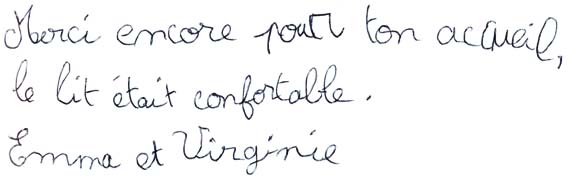 Merci encore pour ton accueil,
le lit était confortable.
Emma et Virginie